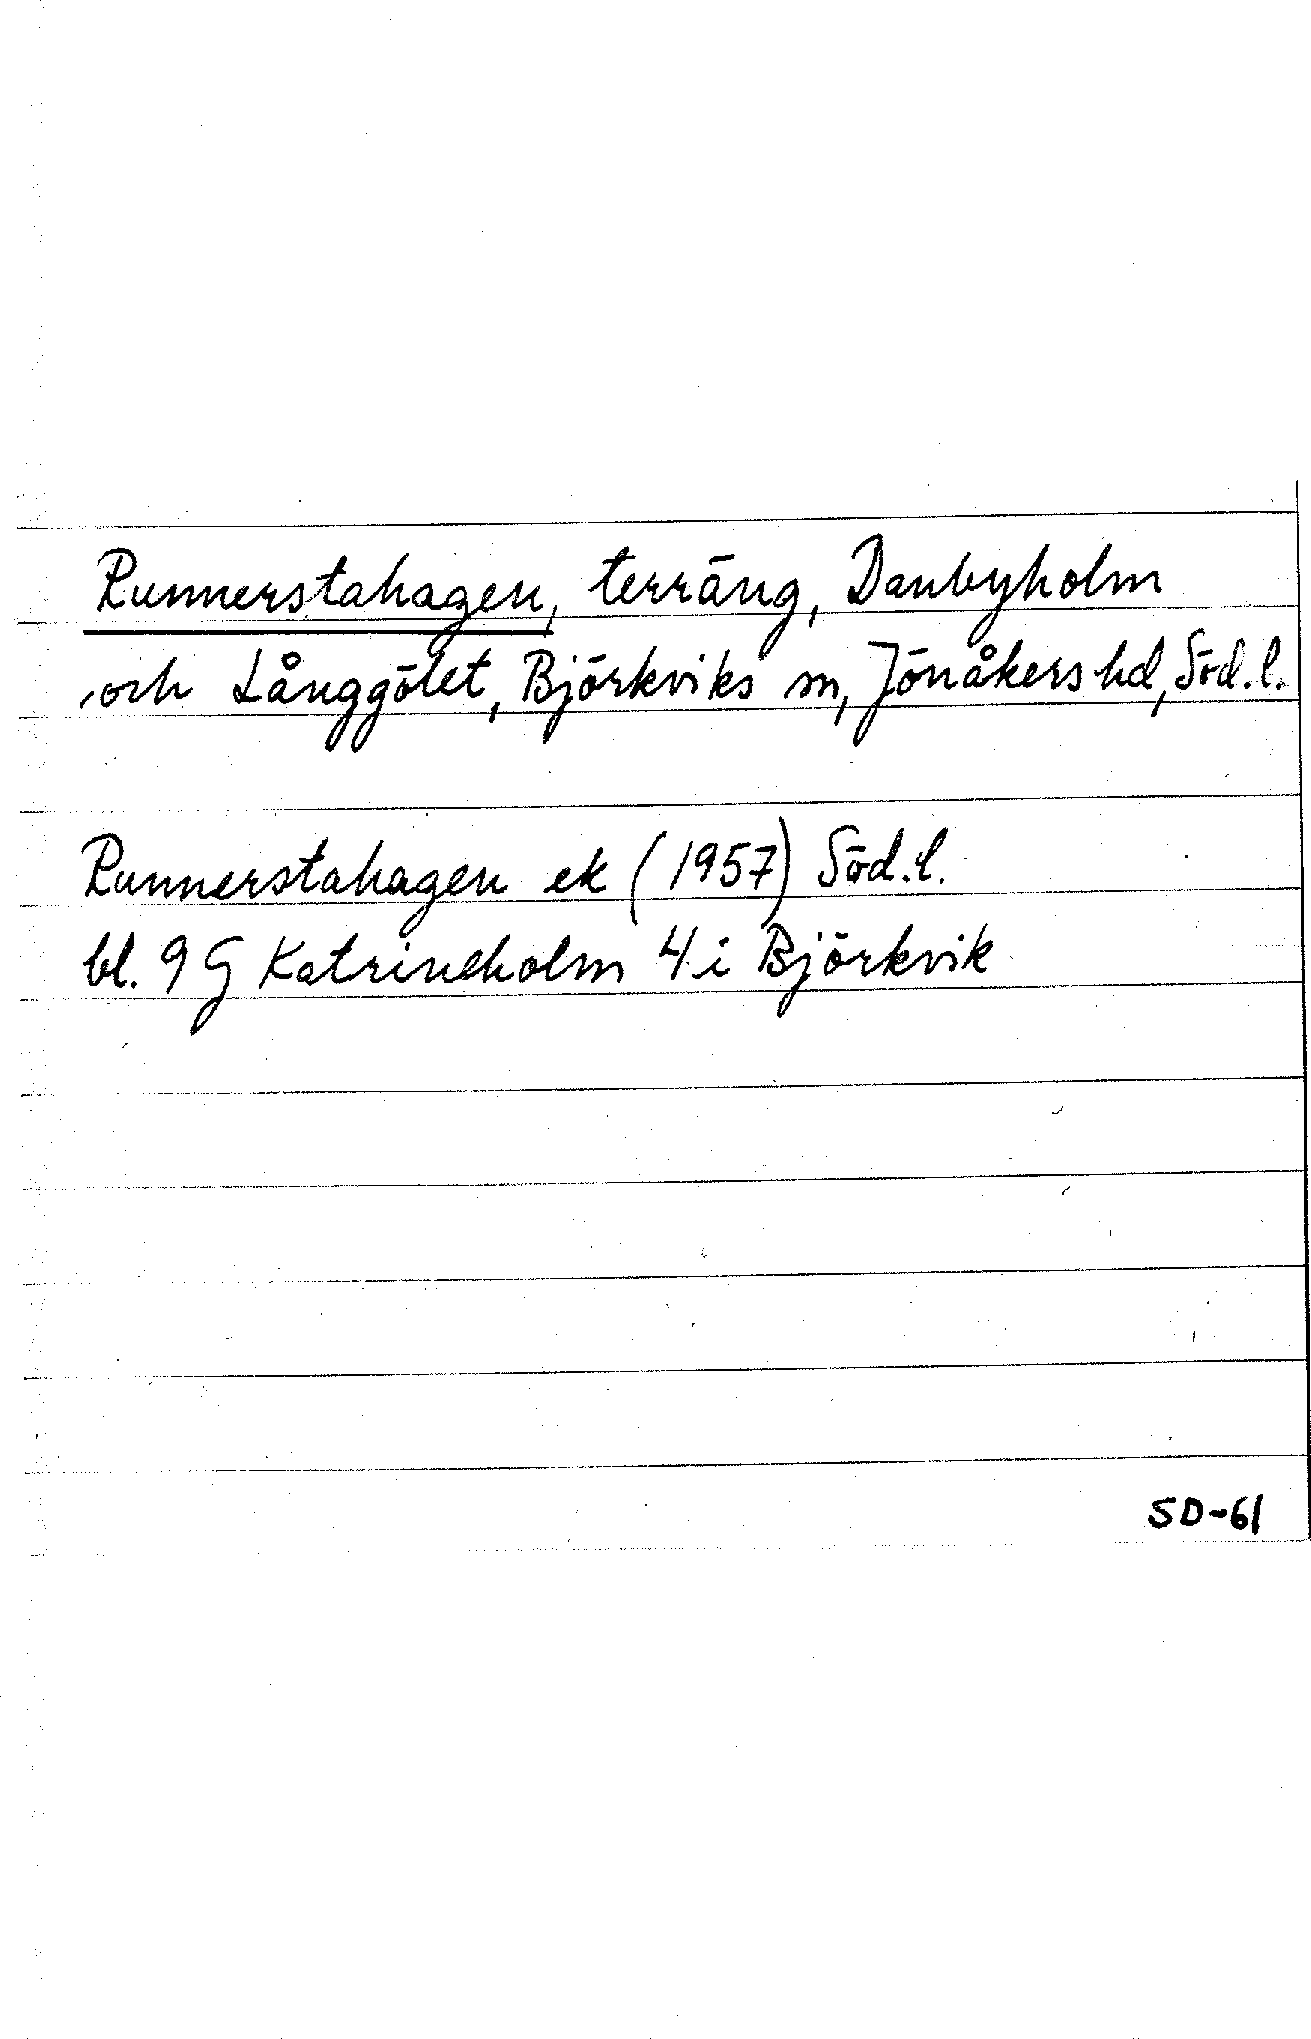 Runnerstahagen, terräng, Danbyholm
och Långgölet, Björkviks sn, Jönåkers hd, Söd. l.
Runnerstahagen ek (1957) Söd. l.
bl. 9 G Katrineholm 4 i Björkvik
SD-61